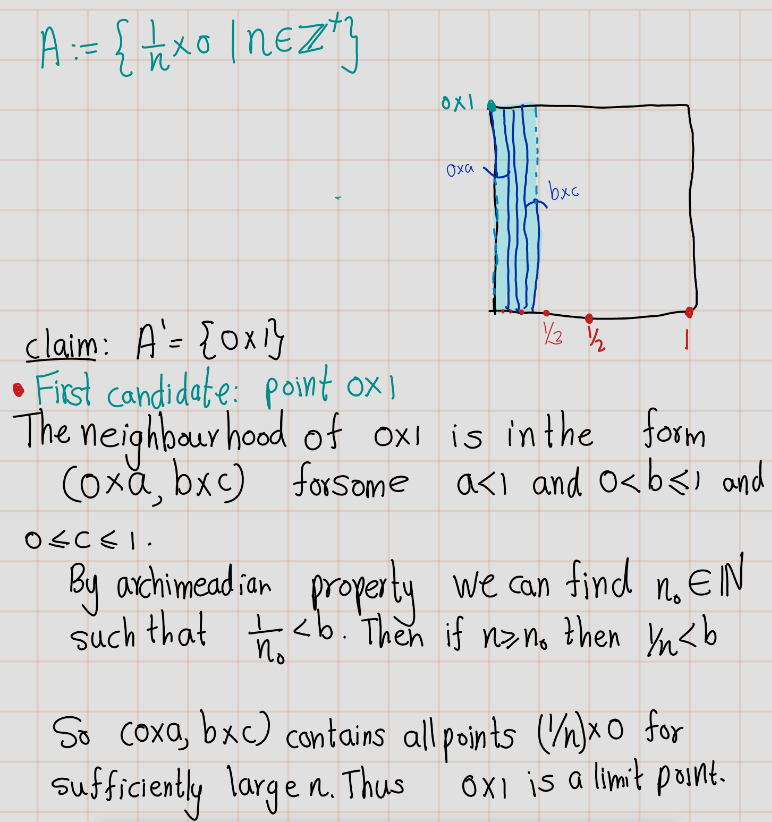 A := { 1/n × 0 | n ∈ Z⁺}
0×1
0×a
b×c
1/3
1/2
1
claim: A' = {0×1}
• First candidate: point 0×1
The neighbourhood of 0×1 is in the form
(0×a, b×c) for some a<1 and 0<b≤1 and
0≤c≤1.
By archimeadian property we can find n₀ ∈ ℕ
such that 1/n₀ < b. Then if n≥n₀ then 1/n<b
So (0×a, b×c) contains all points (1/n)×0 for
sufficiently large n. Thus 0×1 is a limit point.